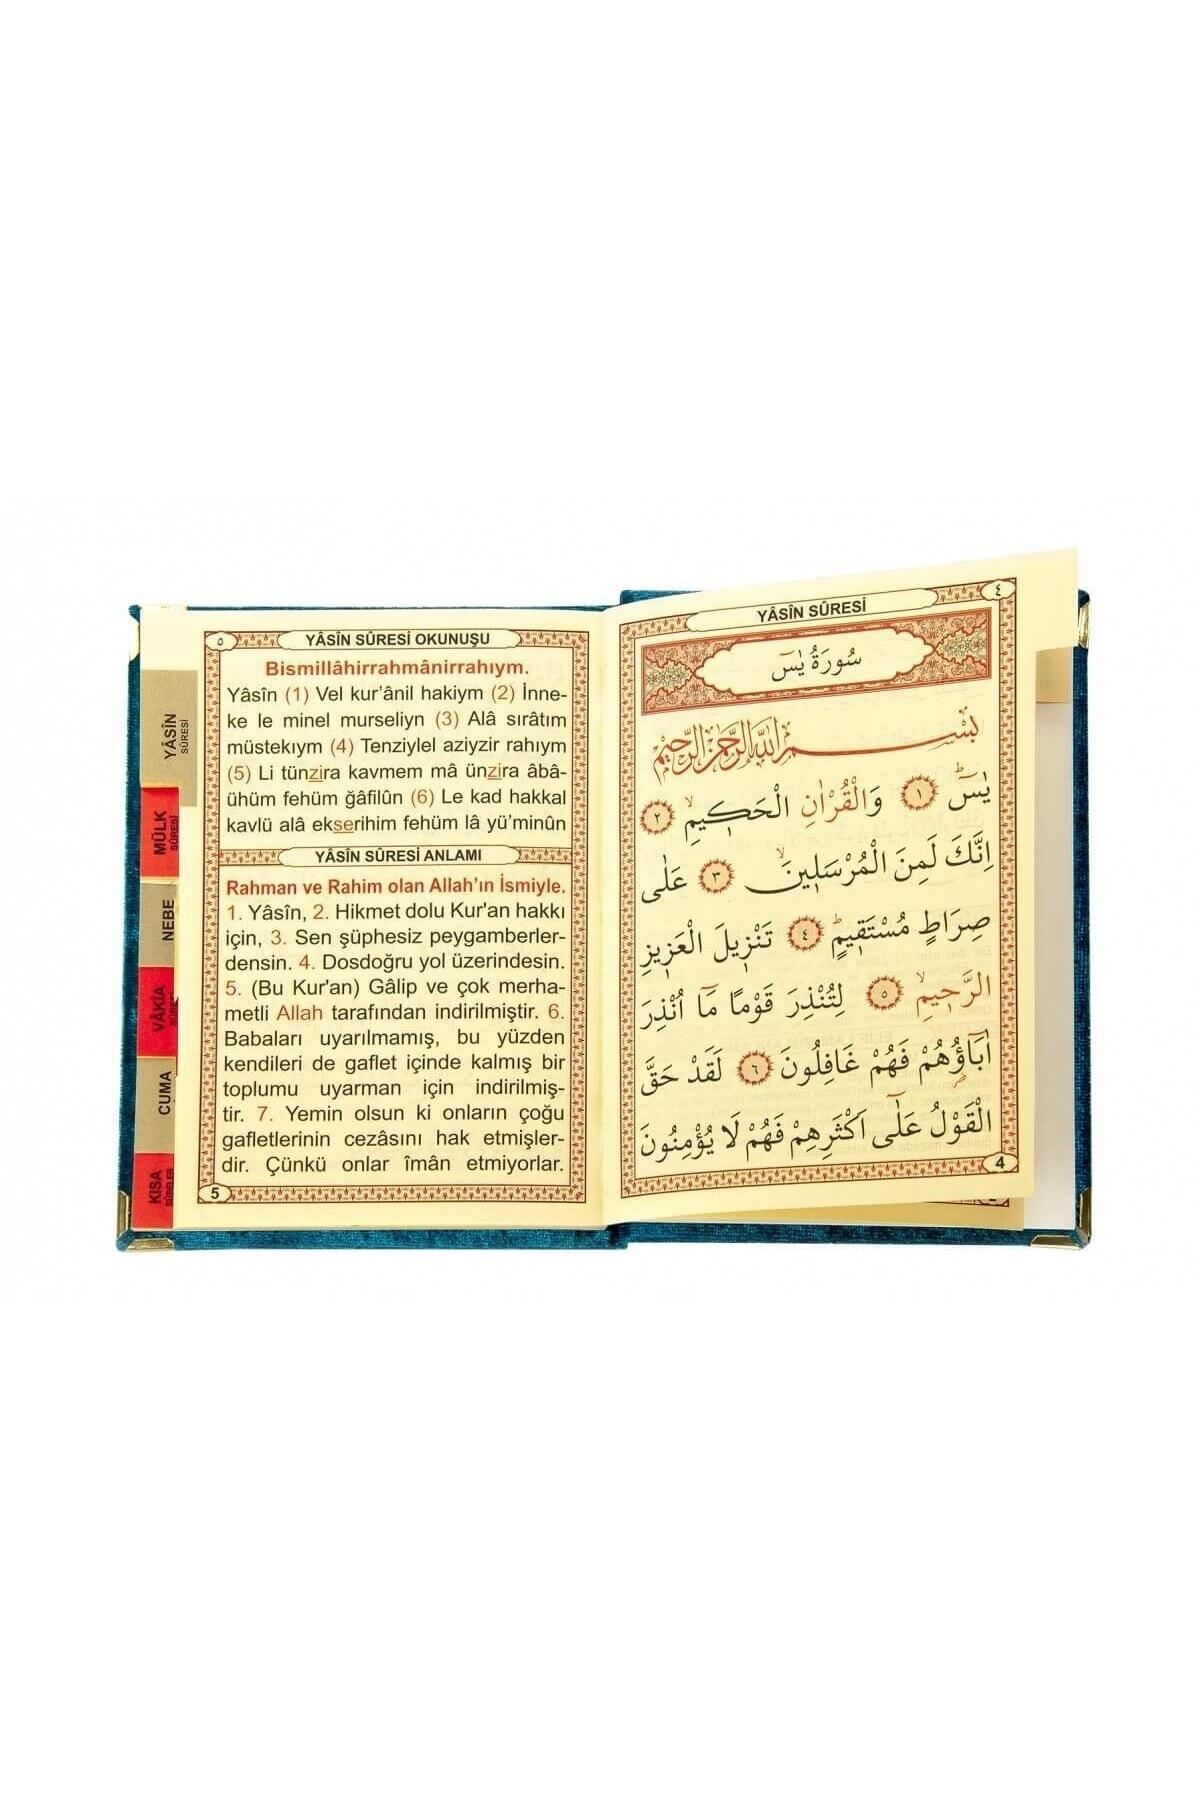 YÂSÎN
SÛRESİ
MÜLK
SÛRESİ
NEBE
VÂKİA
CUMA
KISA
SÛRELER
٥
YÂSÎN SÛRESİ OKUNUŞU
Bismillâhirrahmânirrahıym.
Yâsîn (1) Vel kur’ânil hakiym (2) İnne-
ke le minel murseliyn (3) Alâ sırâtım
müstekıym (4) Tenziylel aziyzir rahıym
(5) Li tünzira kavmem mâ ünzira âbâ-
ühüm fehüm ğâfilûn (6) Le kad hakkal
kavlü alâ ekserihim fehüm lâ yü’minûn
YÂSÎN SÛRESİ ANLAMI
Rahman ve Rahim olan Allah’ın İsmiyle.
1. Yâsîn, 2. Hikmet dolu Kur'an hakkı
için, 3. Sen şüphesiz peygamberler-
densin. 4. Dosdoğru yol üzerindesin.
5. (Bu Kur'an) Gâlip ve çok merha-
metli Allah tarafından indirilmiştir. 6.
Babaları uyarılmamış, bu yüzden
kendileri de gaflet içinde kalmış bir
toplumu uyarman için indirilmiş-
tir. 7. Yemin olsun ki onların çoğu
gafletlerinin cezâsını hak etmişler-
dir. Çünkü onlar îmân etmiyorlar.
5
٤
YÂSÎN SÛRESİ
سُورَةُ يٰسٓ
بِسْمِ اللّٰهِ الرَّحْمٰنِ الرَّحِيمِ
يٰسٓ ۚ ﴿١﴾ وَالْقُرْاٰنِ الْحَك۪يمِۙ ﴿٢﴾
اِنَّكَ لَمِنَ الْمُرْسَل۪ينَۙ ﴿٣﴾ عَلٰى
صِرَاطٍ مُسْتَق۪يمٍۜ ﴿٤﴾ تَنْز۪يلَ الْعَز۪يزِ
الرَّح۪يمِۙ ﴿٥﴾ لِتُنْذِرَ قَوْمًا مَٓا اُنْذِرَ
اٰبَٓاؤُ۬هُمْ فَهُمْ غَافِلُونَ ﴿٦﴾ لَقَدْ حَقَّ
الْقَوْلُ عَلٰٓى اَكْثَرِهِمْ فَهُمْ لَا يُؤْمِنُونَ
4